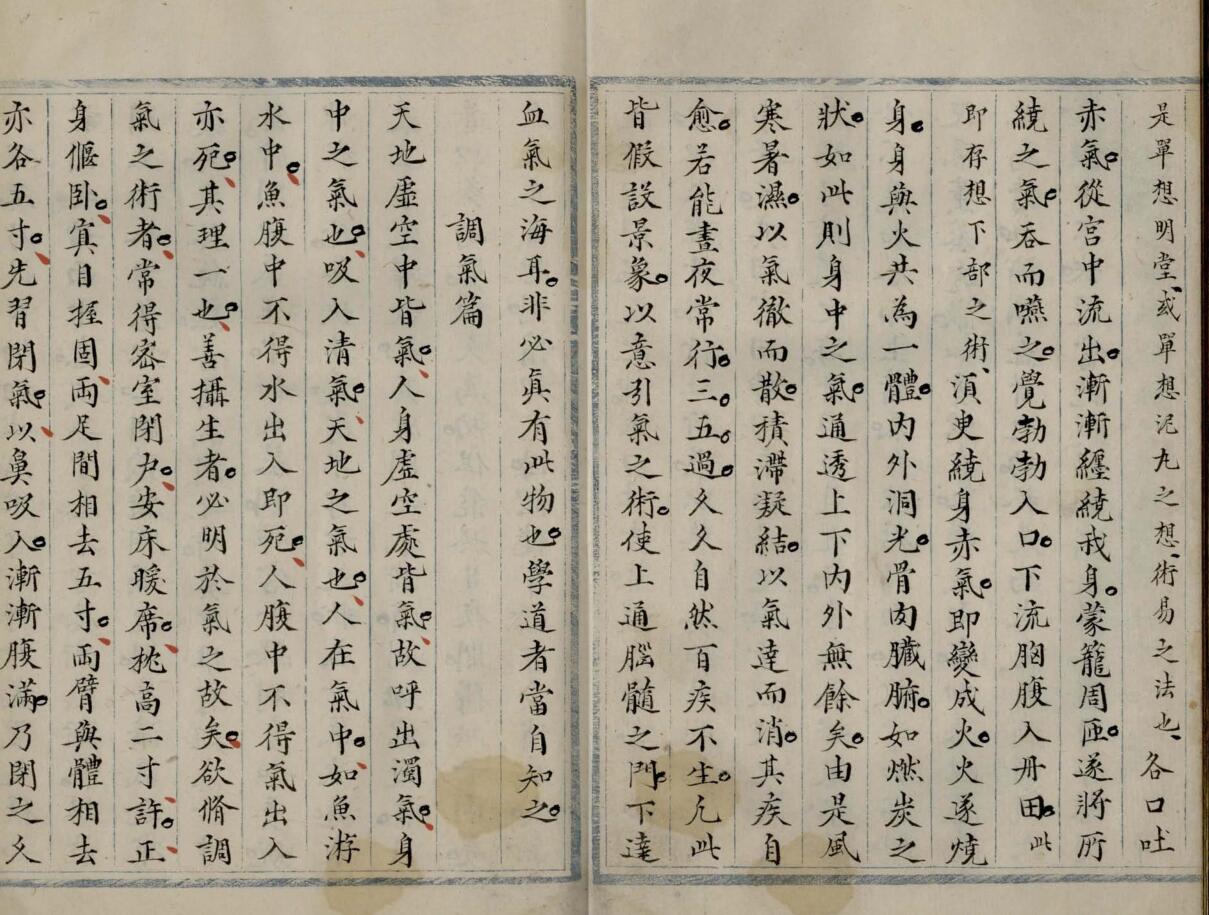 是單想明堂、或單想泥丸之想、術易之法也、各口吐
赤氣。從宮中流出。漸漸纏繞我身。蒙籠周匝。遂將所
繞之氣。吞而嚥之。覺勃勃入口。下流胸腹入丹田。此
即存想下部之術、湏臾繞身赤氣。即變成火。火遂燒
身。身與火共為一體。內外洞光。骨肉臟腑。如燃炭之
狀。如此則身中之氣。通透上下內外無餘矣。由是風
寒暑濕。以氣徹而散。積滯凝結。以氣達而消。其疾自
愈。若能晝夜常行。三。五。過。久久自然百疾不生。凢此
皆假設景象。以意引氣之術。使上通腦髓之門。下達
血氣之海耳。非必眞有此物也。學道者當自知之。
調氣篇
天地虛空中皆氣。人身虛空處皆氣。故呼出濁氣。身
中之氣也。吸入清氣。天地之氣也。人在氣中。如魚游
水中。魚腹中不得水出入即死。人腹中不得氣出入
亦死。其理一也。善攝生者。必明於氣之故矣。欲脩調
氣之術者。常得密室閉户。安床暖席。枕高二寸許。正
身偃卧。寘目握固、両足間相去五寸。両臂與體相去
亦各五寸。先習閉氣。以鼻吸入。漸漸腹滿。乃閉之久